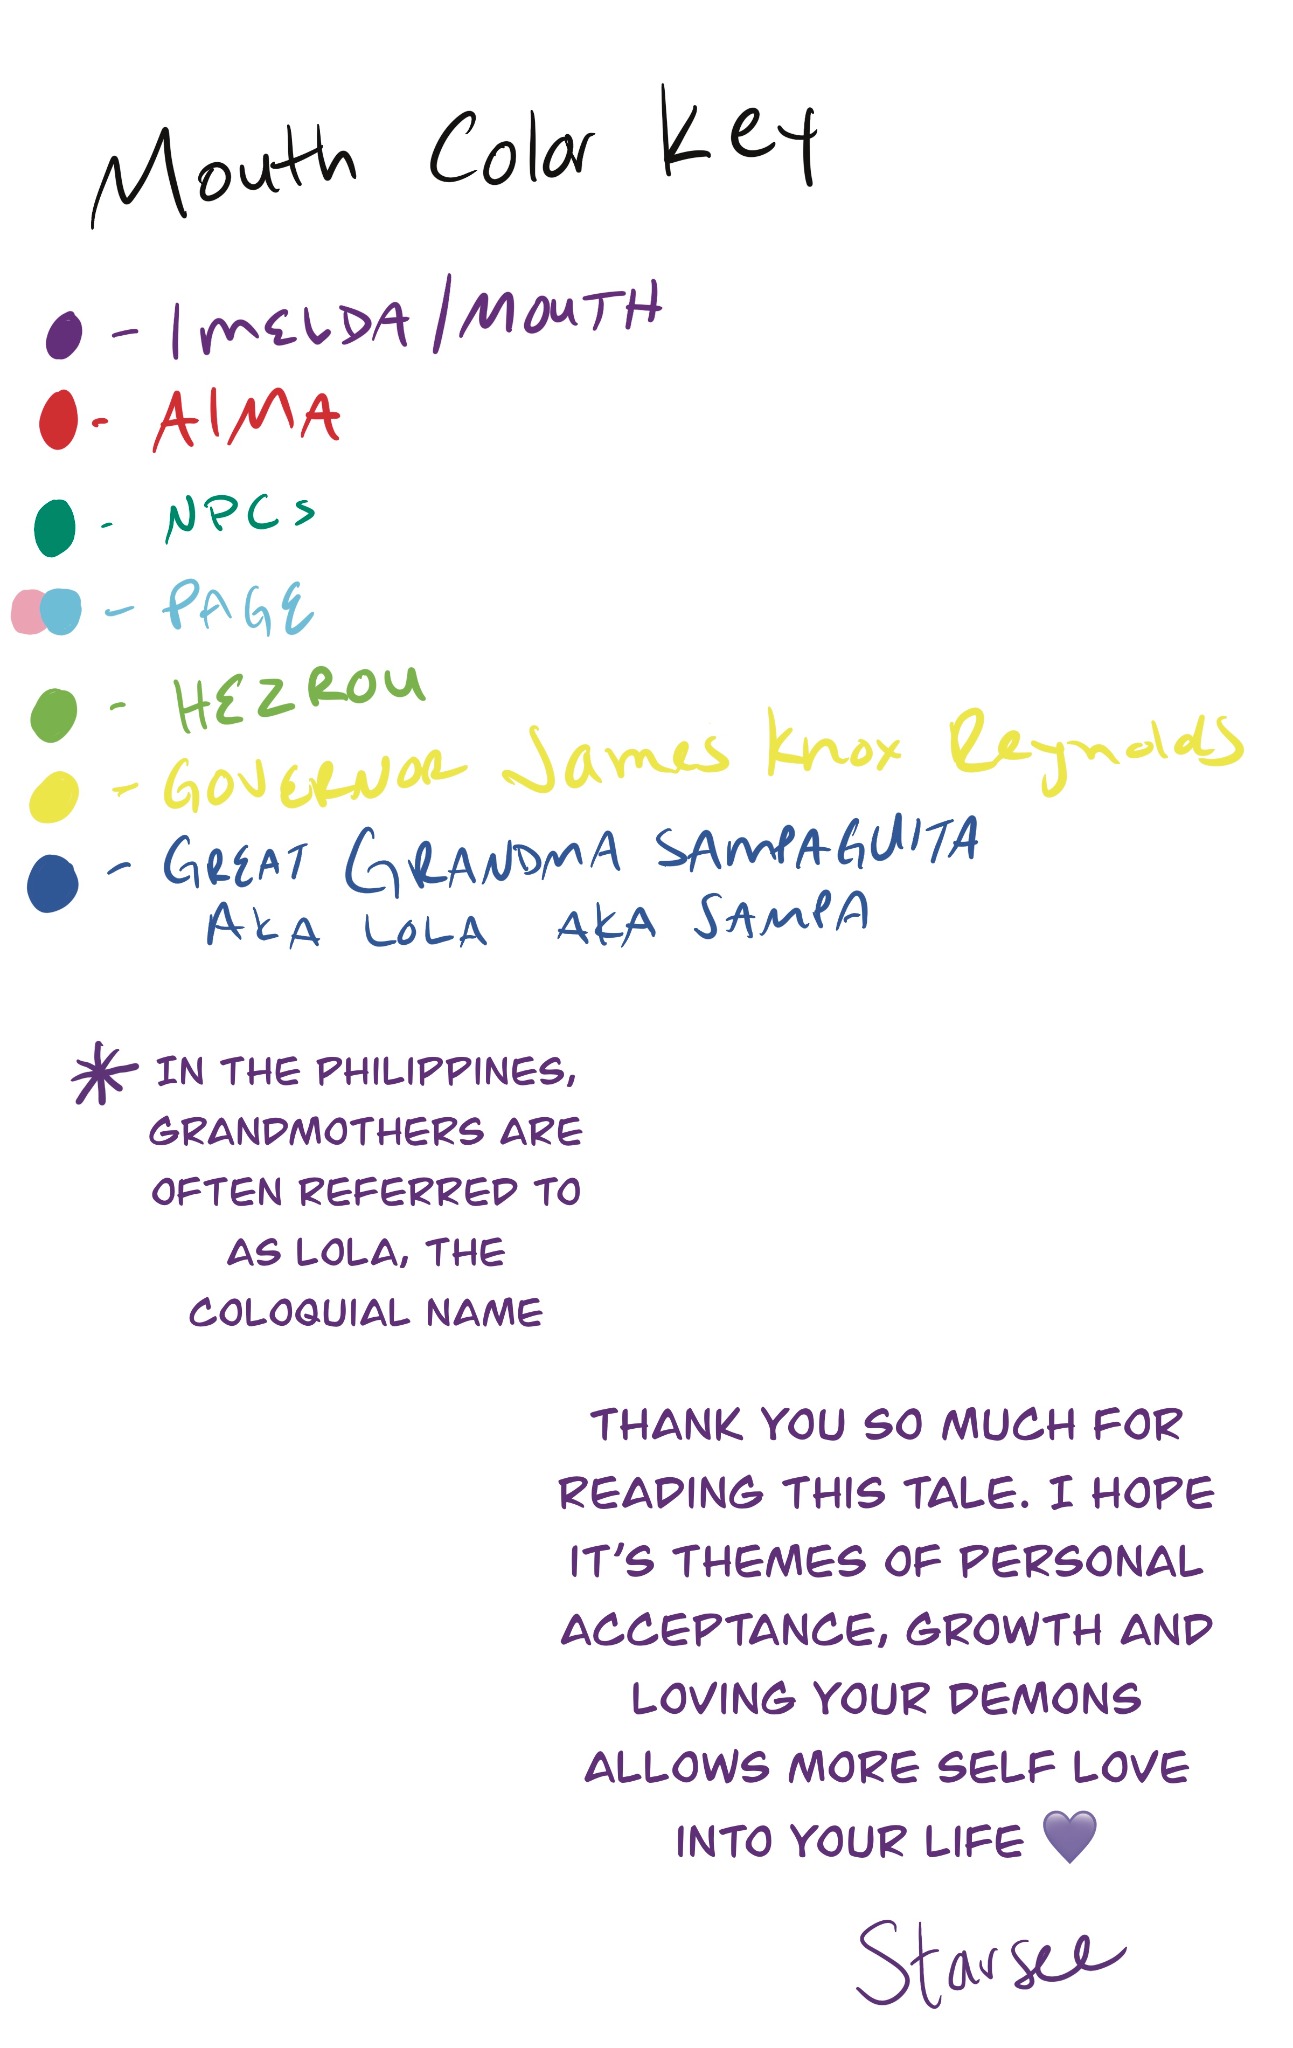 Mouth Color Key
- IMELDA/MOUTH
- AlMA
- NPCs
- PAGE
- HEZROU
- GOVERNOR James Knox Reynolds
- GREAT GRANDMA SAMPAGUITA
AKA LOLA AKA SAMPA
* IN THE PHILIPPINES,
GRANDMOTHERS ARE
OFTEN REFERRED TO
AS LOLA, THE
COLOQUIAL NAME
THANK YOU SO MUCH FOR
READING THIS TALE. I HOPE
IT'S THEMES OF PERSONAL
ACCEPTANCE, GROWTH AND
LOVING YOUR DEMONS
ALLOWS MORE SELF LOVE
INTO YOUR LIFE 💜
Starsee